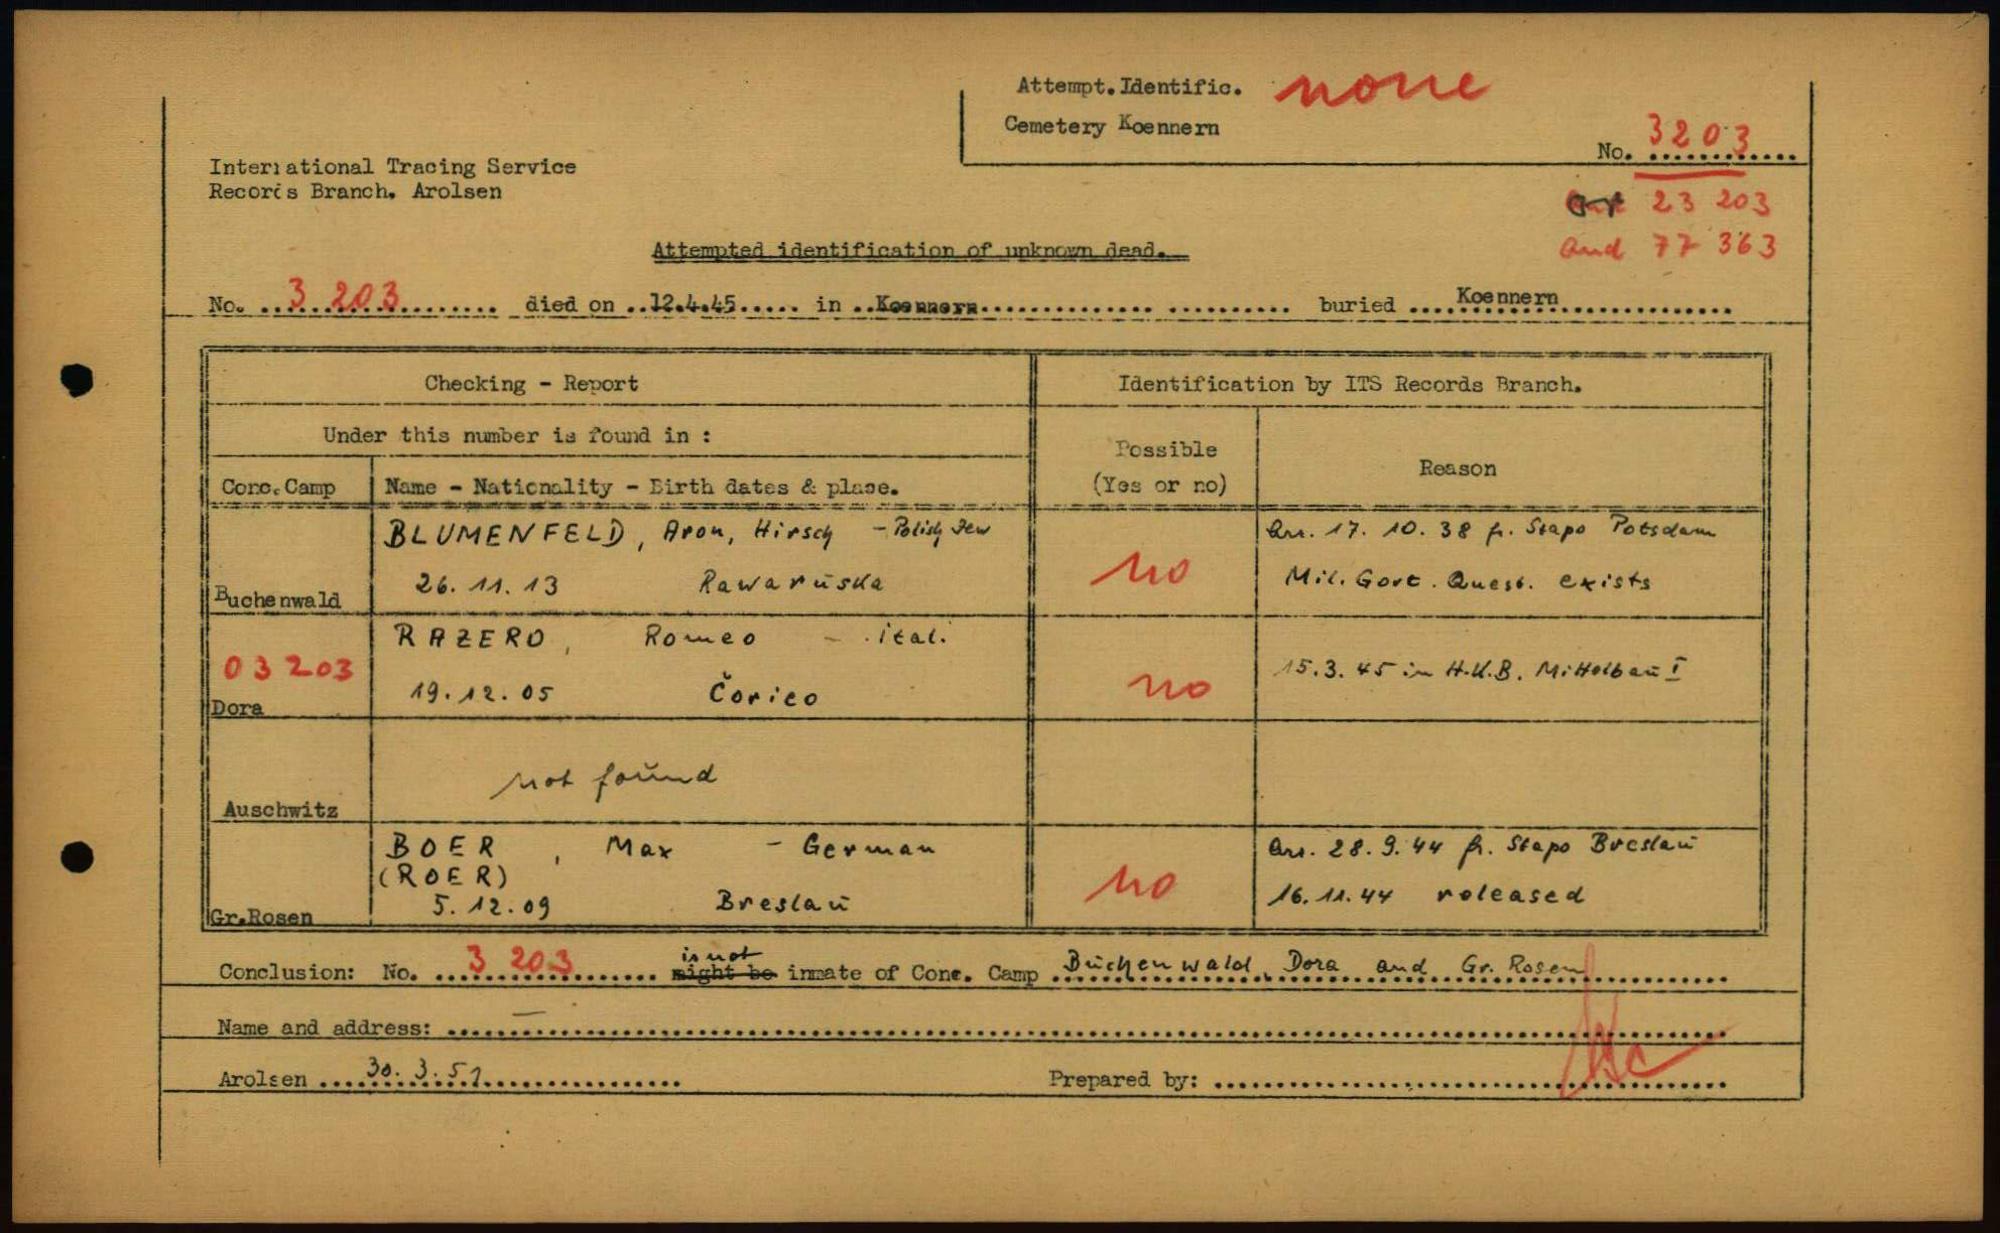 Attempt. Identific. none
Cemetery Koennern
No. 3203
International Tracing Service
Records Branch. Arolsen
or 23 203
and 77 363
Attempted identification of unknown dead.
No. 3 203 died on 12.4.45 in Koennern buried Koennern
Checking - Report
Identification by ITS Records Branch.
Under this number is found in :
Possible
(Yes or no)
Reason
Conc. Camp
Name - Nationality - Birth dates & place.
BLUMENFELD, Aron, Hirsch - Polish Jew
Arr. 17. 10. 38 fr. Stapo Potsdam
no
26. 11. 13 Rawaruska
Mil. Govt. Quest. exists
Buchenwald
RAZERO, Romeo - ital.
03203
15.3.45 in H.K.B. Mittelbau I
no
19.12.05 Čorico
Dora
not found
Auschwitz
BOER, Max - German
Arr. 28.9.44 fr. Stapo Breslau
(ROER)
no
5.12.09 Breslau
16.11.44 released
Gr.Rosen
is not
Conclusion: No. 3 203 might be inmate of Conc. Camp Buchenwald, Dora and Gr. Rosen
Name and address: —
Arolsen 30.3.51
Prepared by: